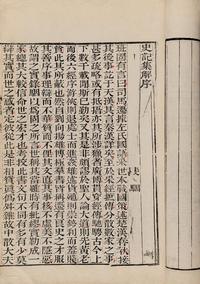 史記集解序
裴駰
班固有言曰司馬遷據左氏國語采世本戰國策述楚漢春秋接
其後事訖于天漢其言秦漢詳矣至於采經摭傳分散數家之事
甚多疏略或有抵捂亦其所涉獵者廣博貫穿經傳馳騁古今上
下數千載間斯已勤矣又其是非頗謬於聖人論大道則先黃老
而後六經序游俠則退處士而進姦雄述貨殖則崇勢利而羞貧
賤此其所蔽也然自劉向揚雄博極羣書皆稱遷有良史之才服
其善序事理辯而不華質而不俚其文直其事核不虛美不隱惡
故謂之實錄駰以為固之所言世稱其當雖時有紕繆實勒成一
家總其大較信命世之宏才也考較此書文句不同有多有少莫
辯其實而世之惑者定彼從此是非相貿真偽舛雜故中散大夫